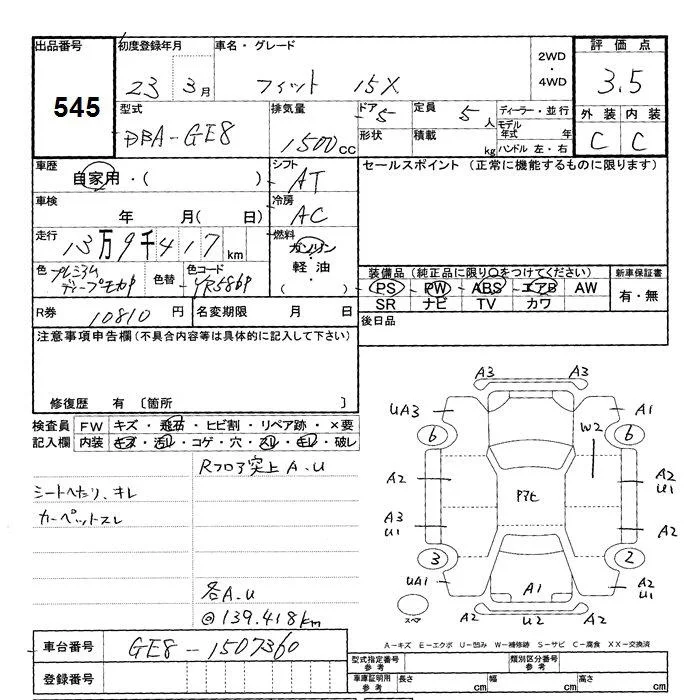 出品番号 初度登録年月 車名・グレード 2WD・4WD 評価点
545 23 3月 フィット 15X 3.5
型式 排気量 ドア 5 定員 5人 ディーラー・並行 外装 内装
DBA-GE8 1500cc 形状 積載 kg モデル年式 年 C C
ハンドル 左・右
車歴 シフト セールスポイント (正常に機能するものに限ります)
自家用・( ) AT
車検 冷房
年 月( 日) AC
走行 燃料
13万9千417km ガソリン
軽油
( )
色 プレミアムディープモカP 色替 色コード YR586P
装備品(純正品に限り○をつけてください) 新車保証書
PS PW ABS エアB AW 有・無
SR ナビ TV カワ
R券 10810円 名変期限 月 日 後日品
注意事項申告欄(不具合内容等は具体的に記入して下さい)
修復歴 有 〔箇所 〕
検査員 FW キズ・飛石・ヒビ割・リペア跡・×要
記入欄 内装 キズ・汚レ・コゲ・穴・スレ・キレ・破レ
Rフロア突上 A.U
シートへたり、キレ
カーペットスレ
各A.U
@139.418km
A3
A3
UA3 A1
6 6
W2
A2 A2
U1
アセ
A3 A2
U1
3 2
UA1 A1 A2
U1
スペア A2 U2 A2
A-キズ E-エクボ U-凹み W-補修跡 S-サビ C-腐食 XX-交換済
車台番号 GE8-1507360
型式指定番号 参考 類別区分番号 参考
登録番号 車庫証明用 参考 長さ cm 幅 cm 高さ cm